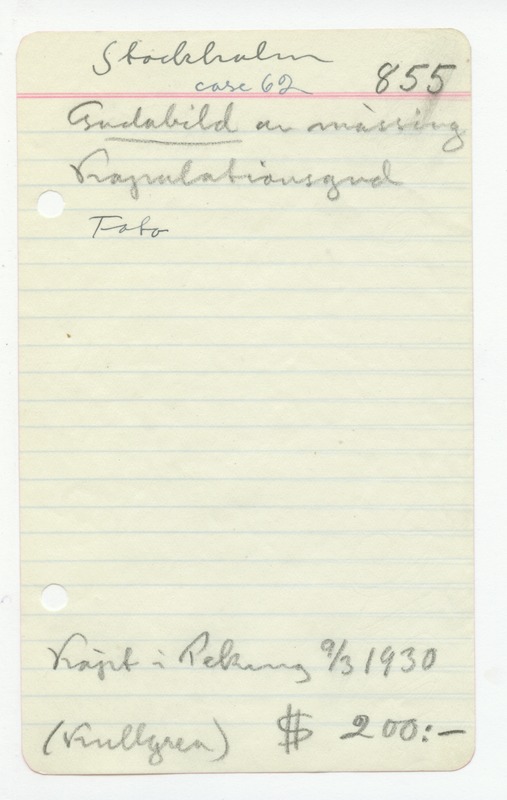 Stockholm
case 62 855
Gudabild av mässing
Kopulationsgud
Foto
Köpt i Peking 9/3 1930
(Kullgren) $ 200:-